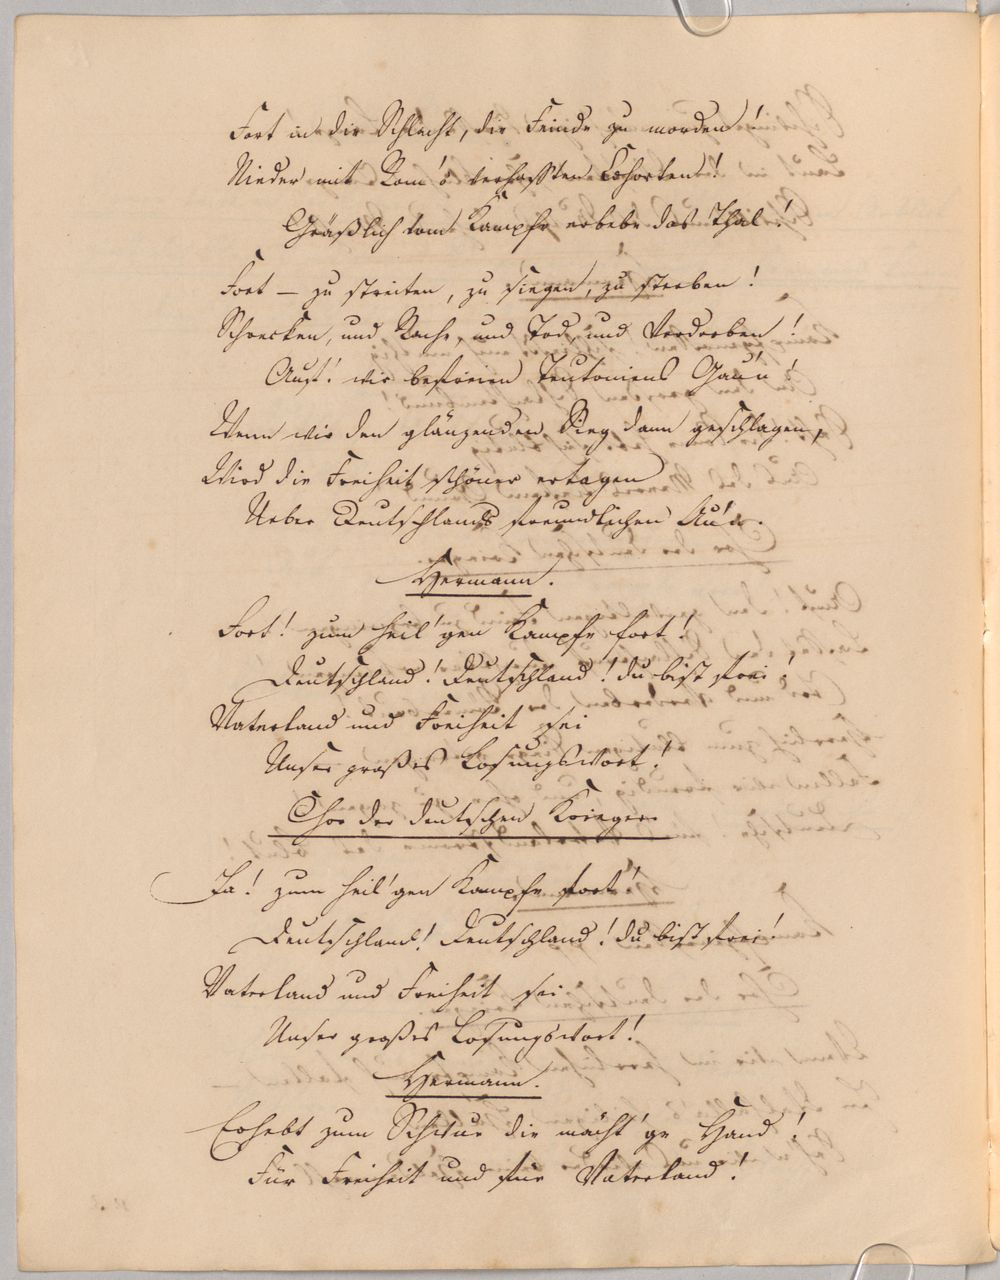 Fort in die Schlacht, die Feinde zu morden!
Nieder mit Rom's verhaßten Cohorten!
Gräßlich vom Kampfe erbebe das Thal!
Fort — zu streiten, zu siegen, zu sterben!
Schrecken, und Rache, und Tod, und Verderben!
Auf! wir befreien Teutoniens Gau'n!
Wenn wir den glänzenden Sieg dann geschlagen,
Wird die Freiheit schöner ertagen
Ueber Deutschlands freundlichen Au'n.
Hermann.
Fort! zum heil'gen Kampfe fort!
Deutschland! Deutschland! du bist frei!
Vaterland und Freiheit sei
Unser großes Losungswort!
Chor der deutschen Krieger
Ja! zum heil'gen Kampfe fort!
Deutschland! Deutschland! du bist frei!
Vaterland und Freiheit sei
Unser großes Losungswort!
Hermann.
Erhebt zum Schwur die mächt'ge Hand!
Für Freiheit und für Vaterland!